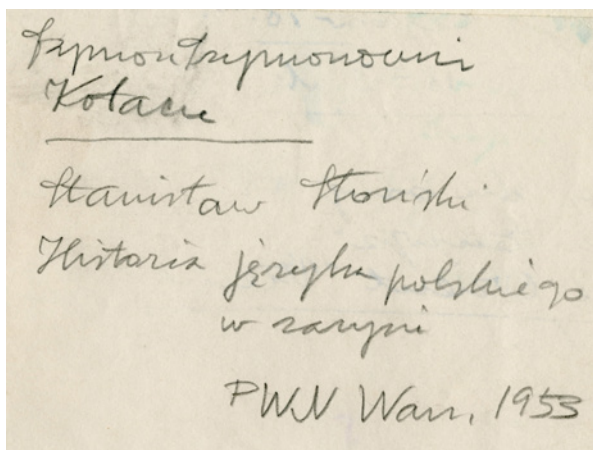 Szymon Szymonowic
Kołacze
Stanisław Słoński
Historia języka polskiego
w zarysie
PWN Warsz. 1953